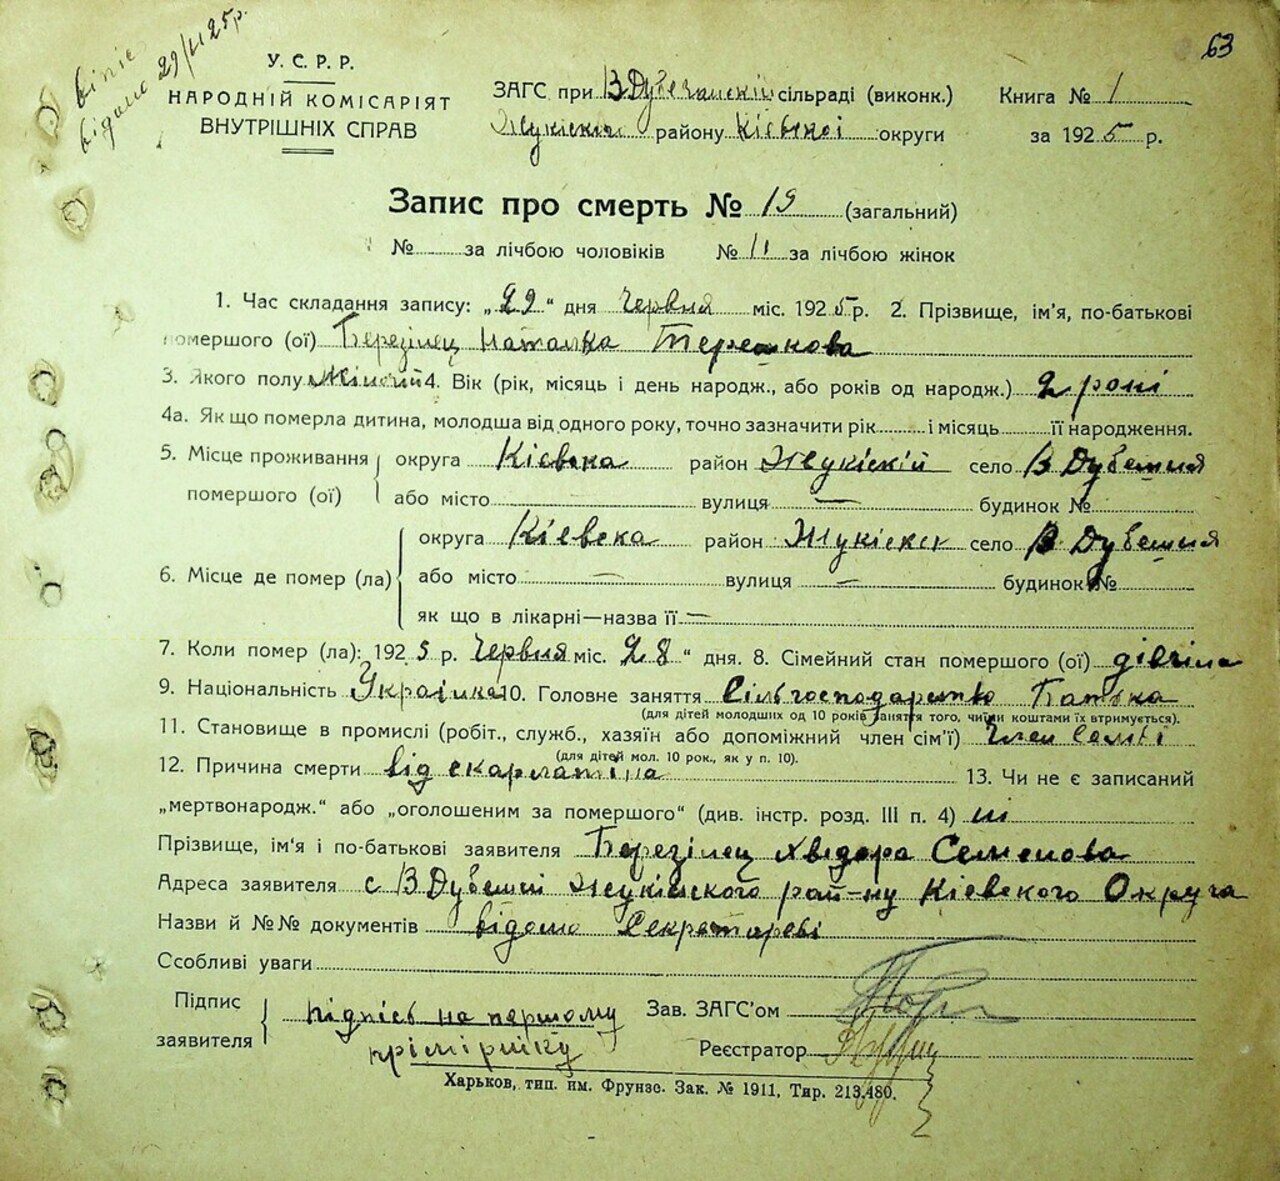 63
відано 29/VI 25р.
У. С. Р. Р.
НАРОДНІЙ КОМІСАРІЯТ
ВНУТРІШНІХ СПРАВ
ЗАГС при В Дубечанскій сільраді (виконк.)
району Кіевскоі округи
Книга № 1
за 1925 р.
Запис про смерть № 19 (загальний)
№ за лічбою чоловіків № 11 за лічбою жінок
1. Час складання запису: „29“ дня Червня міс. 1925 р. 2. Прізвище, ім'я, по-батькові
помершого (ої) Березінец Наталка
3. Якого полу Жіночій 4. Вік (рік, місяць і день народж., або років од народж.) 2 рокі
4а. Як що померла дитина, молодша від одного року, точно зазначити рік і місяць її народження.
5. Місце проживання округа Кіевска район Жукінскій село В Дубешня
помершого (ої) або місто вулиця — будинок №
округа Кіевска район село В Дубешня
6. Місце де помер (ла) або місто — вулиця — будинок №
як що в лікарні—назва її —
7. Коли помер (ла): 1925 р. Червня міс. 28 “ дня. 8. Сімейний стан помершого (ої) дівчіна
9. Національність Украінка 10. Головне заняття Сільгосподарство Батька
(для дітей молодших од 10 років заняття того, чиїми коштами їх втримується).
11. Становище в промислі (робіт., служб., хазяїн або допоміжний член сім'ї) Член Семьі
(для дітей мол. 10 рок., як у п. 10).
12. Причина смерти від скарлатіна 13. Чи не є записаний
„мертвонародж.“ або „оголошеним за помершого“ (див. інстр. розд. III п. 4) ні
Прізвище, ім'я і по-батькові заявителя Березінец Хведора Семенова
Адреса заявителя с В Дубешні рай-ну Кіевского Округа
Назви й №№ документів відомо Секретареві
Особливі уваги
Підпис
заявителя
підпісь на першому
прімірніку
Зав. ЗАГС'ом
Реєстратор
Харьков, тип. им. Фрунзе. Зак. № 1911, Тир. 213.480.